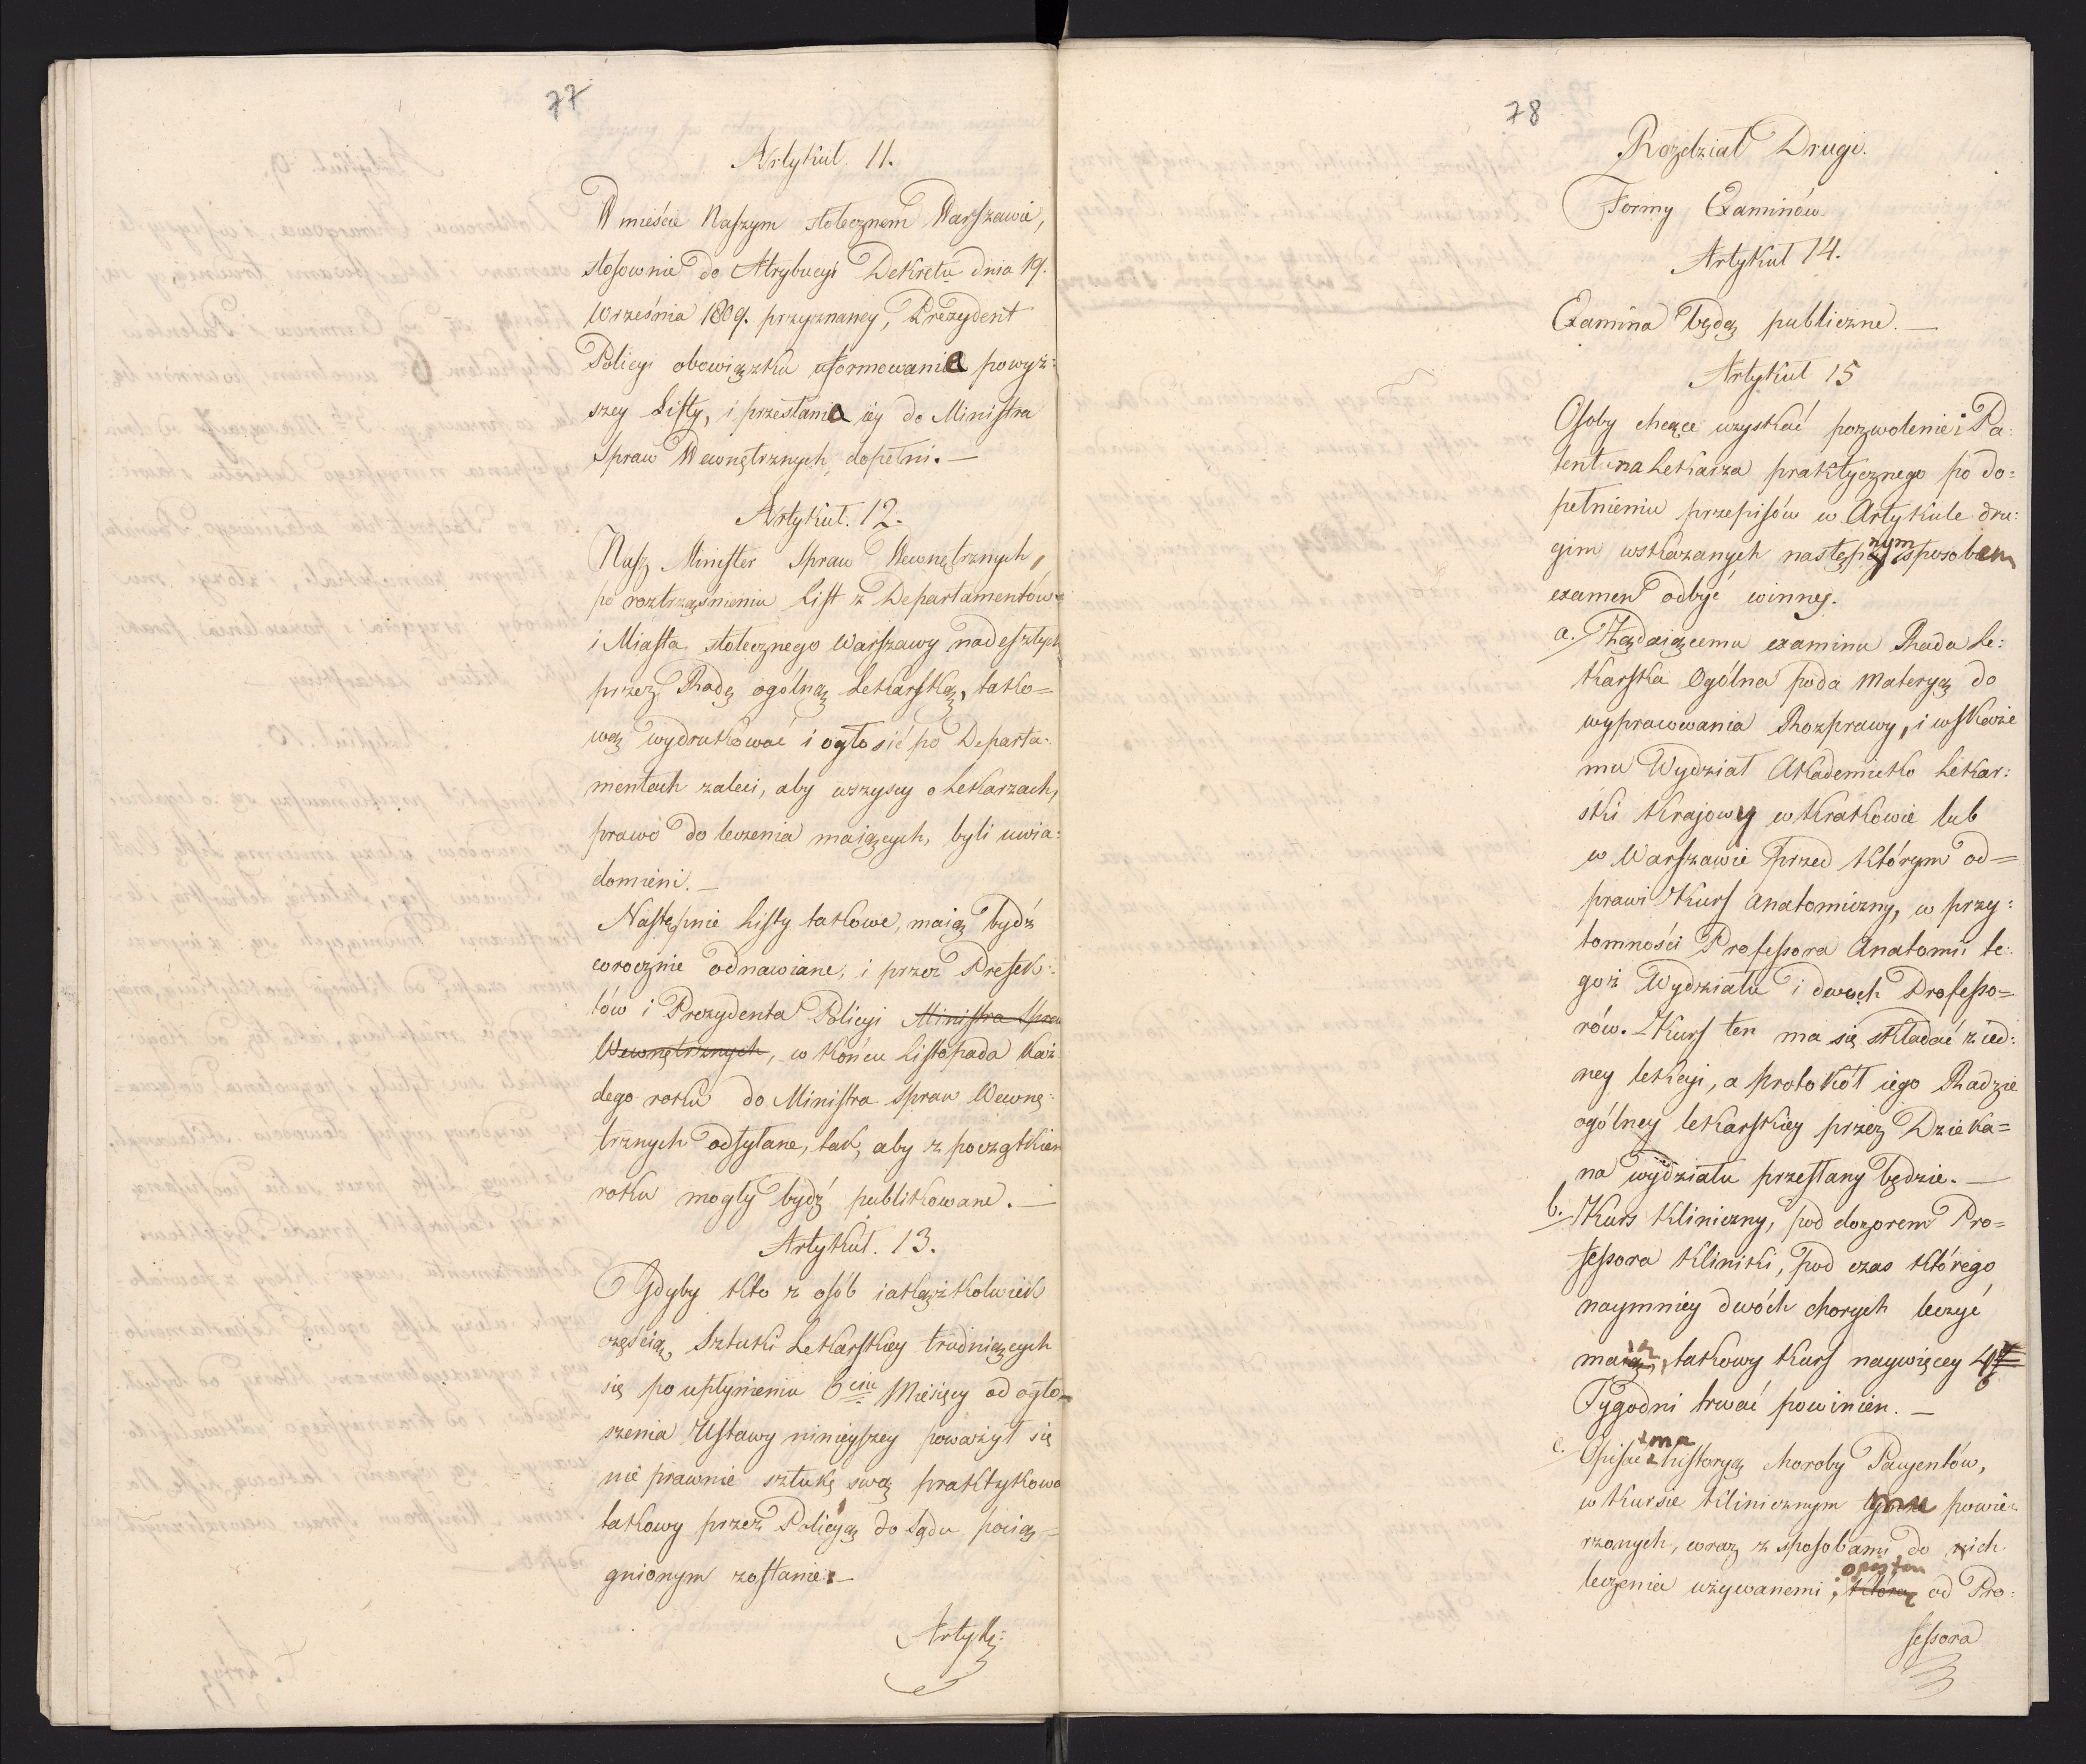 77
Artykuł. 11.
W mieście Naszym stołecznem Warszawie,
stosownie do Atrybucyi Dekretu dnia 19.
Września 1809. przyznaney, Prezydent
Policyi obowiązku uformowania powyż:
szey Listy, i przesłania iey do Ministra
Spraw Wewnętrznych, dopełni. —
Artykuł. 12.
Nasz Minister Spraw Wewnętrznych,
po roztrząśnieniu List z Departamentów
i Miasta stołecznego Warszawy nadeszłych
przez Radę ogólną Lekarską, tako=
wą wydrukować i ogłosić po Departa:
mentach zaleci, aby wszyscy o Lekarzach,
prawo do leczenia maiących, byli uwia:
domieni. —
Następnie Listy takowe, maią bydź
corocznie odnawiane, i przez Prefek:
tów i Prezydenta Policyi Ministra Spraw
Wewnętrznych, w końcu Listopada każ:
dego roku do Ministra Spraw Wewnę:
trznych odsyłane, tak, aby z początkiem
roku mogły bydź publikowane. —
Artykuł. 13.
Gdyby kto z osób iakążkolwiek
częścią Sztuki Lekarskiey trudniących
się po upłynieniu 6ciu Miesięcy od ogło=
szenia Ustawy ninieyszey poważył się
nie prawnie sztukę swą praktykowa
takowy przez Policyą do Sądu pocią=
gnionym zostanie. —
Artyk:
78
Rozdział Drugi.
Formy Examinów
Artykuł 14.
Examina będą publiczne. —
Artykuł 15
Osoby chcące uzyskać pozwolenie i Pa:
tent na Lekarza praktycznego po do=
pełnieniu przepisów w Artykule dru:
gim wskazanych następnym sposobem
examen odbyć winny.
a. Żądaiącemu examinu Rada Le:
karska Ogólna poda Materyą do
wypracowania Rozprawy, i wskaże
mu Wydział Akademicko Lekar:
ski Krajowy w Krakowie lub
w Warszawie przed którym od=
prawi Kurs Anatomiczny, w przy:
tomności Professora Anatomii te:
goż Wydziału i dwóch Professo=
rów. Kurs ten ma się składać z ied:
ney lekcyi, a protokół iego Radzie
ogólney lekarskiey przez Dzieka=
na wydziału przesłany będzie. —
b. Kurs Kliniczny, pod dozorem Pro=
fessora Kliniki, pod czas którego
naymniey dwóch chorych leczyć
ma, takowy Kurs naywięcey 6
Tygodni trwać powinien. —
c. Opisać ma historyą choroby Pacyentów,
w Kursie Klinicznym mu powie=
rzonych, wraz z sposobami do ich
leczenia używanemi; opis ten którą od Pro:
fessora